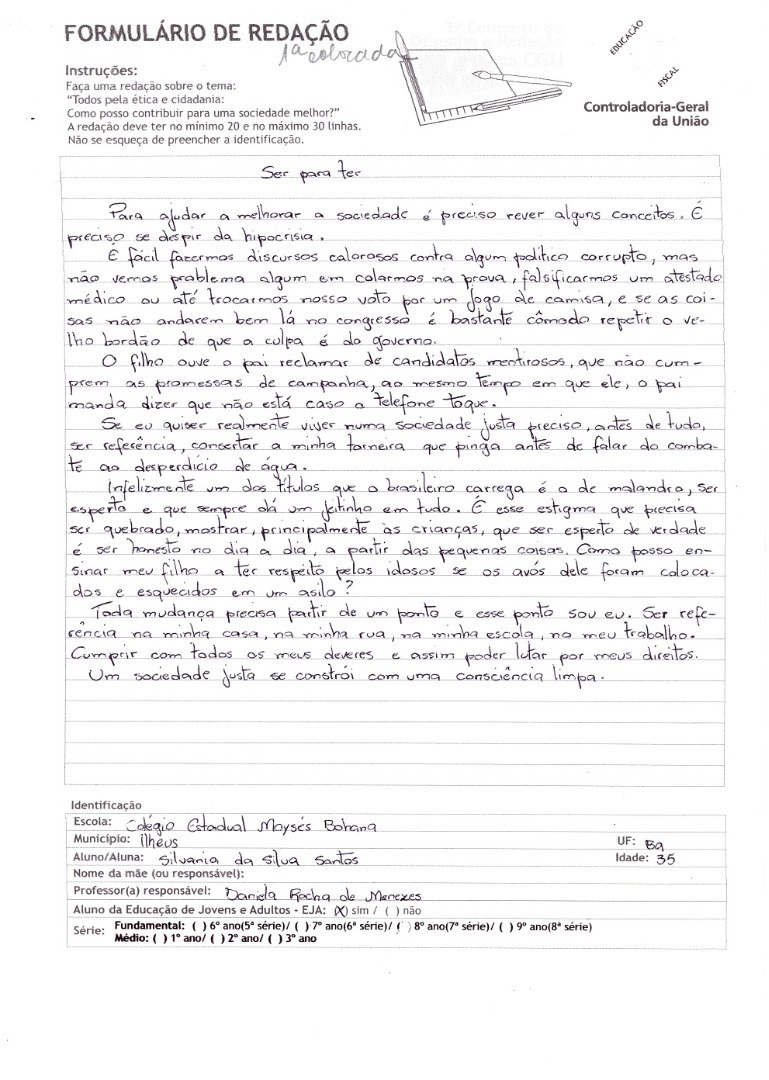 FORMULÁRIO DE REDAÇÃO
1ª colocada
EDUCAÇÃO
FISCAL
Controladoria-Geral
da União
Instruções:
Faça uma redação sobre o tema:
"Todos pela ética e cidadania:
Como posso contribuir para uma sociedade melhor?"
A redação deve ter no mínimo 20 e no máximo 30 linhas.
Não se esqueça de preencher a identificação.
Ser para ter
Para ajudar a melhorar a sociedade é preciso rever alguns conceitos. É
preciso se despir da hipocrisia.
É fácil fazermos discursos calorosos contra algum político corrupto, mas
não vemos problema algum em colarmos na prova, falsificarmos um atestado
médico ou até trocarmos nosso voto por um jogo de camisa, e se as coi-
sas não andarem bem lá no congresso é bastante cômodo repetir o ve-
lho bordão de que a culpa é do governo.
O filho ouve o pai reclamar de candidatos mentirosos, que não cum-
prem as promessas de campanha, ao mesmo tempo em que ele, o pai
manda dizer que não está caso o telefone toque.
Se eu quiser realmente viver numa sociedade justa preciso, antes de tudo,
ser referência, consertar a minha torneira que pinga antes de falar do comba-
te ao desperdício de água.
Infelizmente um dos títulos que o brasileiro carrega é o de malandro, ser
esperto e que sempre dá um jeitinho em tudo. É esse estigma que precisa
ser quebrado, mostrar, principalmente às crianças, que ser esperto de verdade
é ser honesto no dia a dia, a partir das pequenas coisas. Como posso en-
sinar meu filho a ter respeito pelos idosos se os avós dele foram coloca-
dos e esquecidos em um asilo?
Toda mudança precisa partir de um ponto e esse ponto sou eu. Ser refe-
rência na minha casa, na minha rua, na minha escola, no meu trabalho.
Cumprir com todos os meus deveres e assim poder lutar por meus direitos.
Um sociedade justa se constrói com uma consciência limpa.
Identificação
Escola: Colégio Estadual Moysés Bohana
Município: ilhéus UF: Ba
Aluno/Aluna: Silvania da Silva Santos Idade: 35
Nome da mãe (ou responsável):
Professor(a) responsável: Daniela Rocha de Menezes
Aluno da Educação de Jovens e Adultos - EJA: (X) sim / ( ) não
Série: Fundamental: ( ) 6º ano(5ª série)/ ( ) 7º ano(6ª série)/ ( ) 8º ano(7ª série)/ ( ) 9º ano(8ª série)
Médio: ( ) 1º ano/ ( ) 2º ano/ ( ) 3º ano